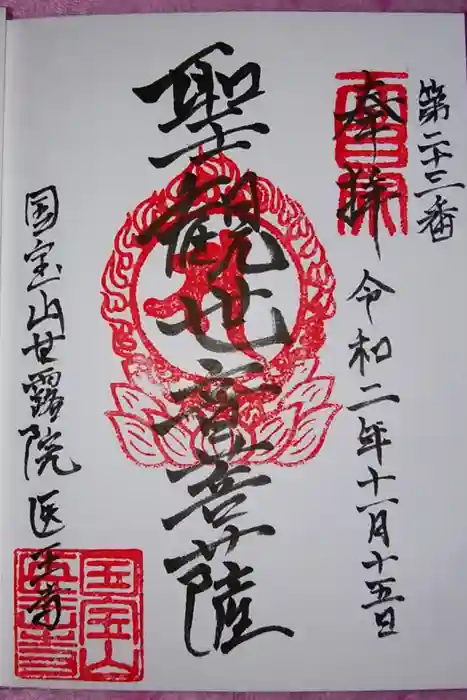 第二十三番
奉拝
令和二年十一月十五日
聖観世音菩薩
国宝山甘露院医王寺
国宝山
医王寺